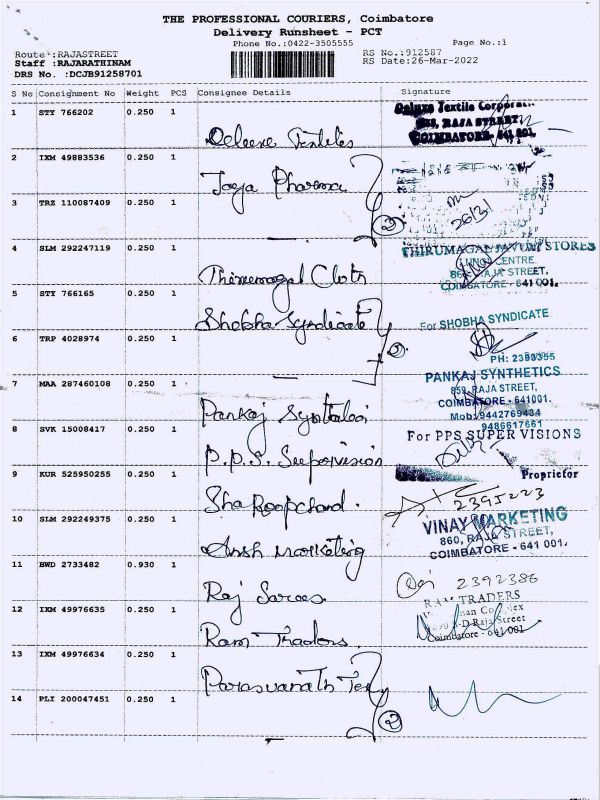 THE PROFESSIONAL COURIERS, Coimbatore
Delivery Runsheet - PCT
Phone No.:0422-3505555
Page No.:1
Route :RAJASTREET
RS No.:912587
Staff :RAJARATHINAM
RS Date:26-Mar-2022
DRS No. :DCJB91258701
S No Consignment No Weight PCS Consignee Details Signature
1 STY 766202 0.250 1
Deluxe Textile
DELUXE, RAJA STREET,
COIMBATORE- 641 001.
2 IXM 49883536 0.250 1
Pharma
3 TRZ 110087409 0.250 1
2
26/3/
4 SLM 292247119 0.250 1
THIRUMAGAL STORES
CENTRE.
RAJA STREET,
COIMBATORE - 641 001.
5 STY 766165 0.250 1
Shobha Syndicate
For SHOBHA SYNDICATE
6 TRP 4028974 0.250 1
PH: 2393355
7 MAA 287460108 0.250 1
PANKAJ SYNTHETICS
859, RAJA STREET,
COIMBATORE - 641001.
Mob:9442769434
9486617661
Pankaj
8 SVK 15008417 0.250 1
For PPS SUPER VISIONS
P.P.S. Supervision
9 KUR 525950255 0.250 1
Proprietor
Sha Roopchand.
2395223
10 SLM 292249375 0.250 1
VINAY MARKETING
860, RAJA STREET,
COIMBATORE - 641 001.
Ansh Marketing
11 BWD 2733482 0.930 1
2392386
Raj Sarees
12 IXM 49976635 0.250 1
RAM TRADERS
Raja Street
Coimbatore - 641 001
Ram Traders
13 IXM 49976634 0.250 1
Parasvanath Tex
14 PLI 200047451 0.250 1
2